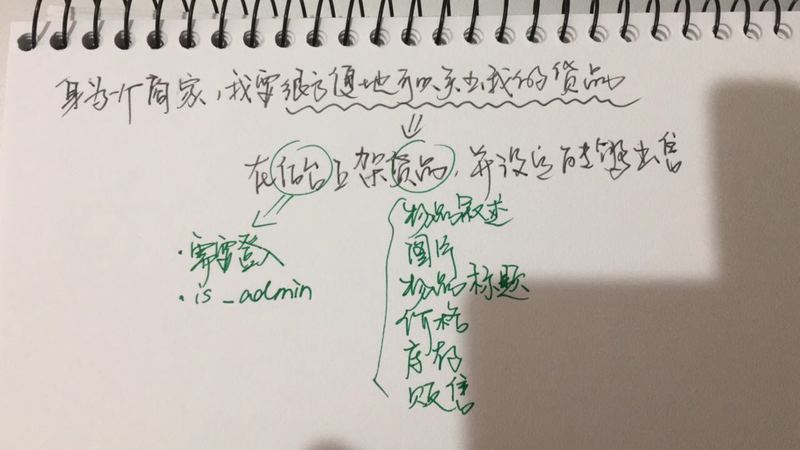 身为一个商家,我要很方便地可以卖出我们的货品
在后台上架货品,并设定可销售
·需要登入
·is_admin
物品叙述
图片
物品标题
价格
库存
贩售